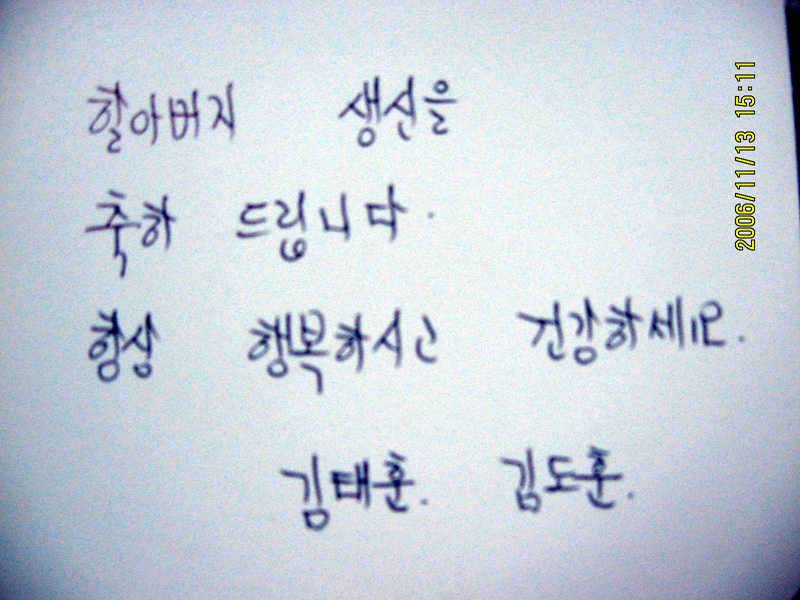 할아버지 생신을
축하 드립니다.
항상 행복하시고 건강하세요.
김태훈. 김도훈.
2006/11/13 15:11